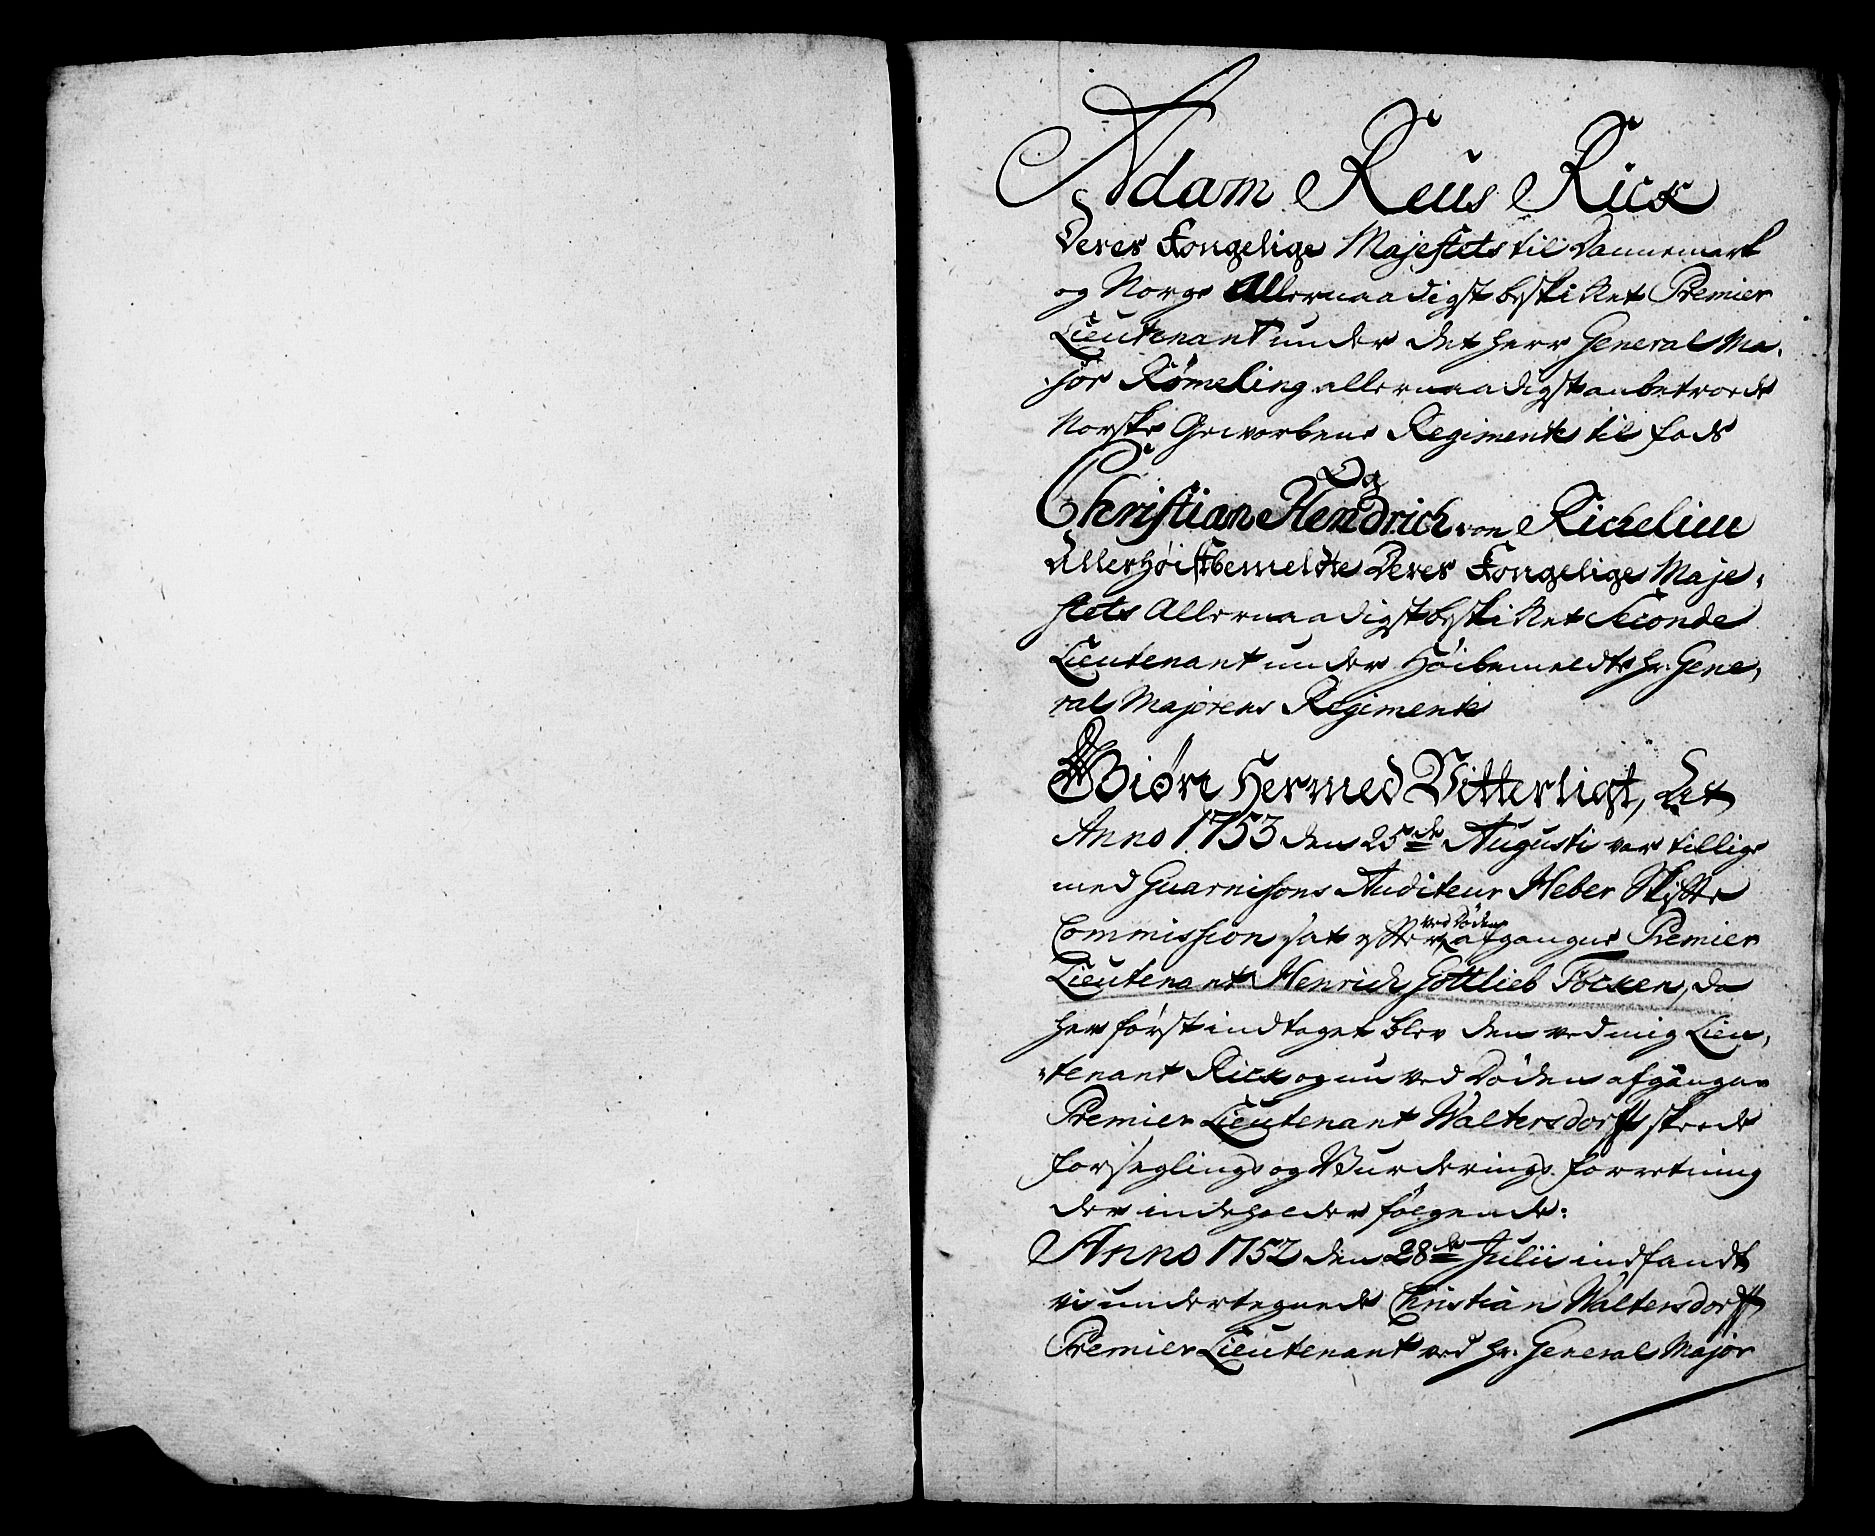 Adam Reus Rick
Deres Kongelige Majestets til Dannemark
og Norge Allernaadigst beskikket Premier
Lieutenant under det herr General Ma-
jor Rømeling allernaadigst anbetroede
Norske Geworbene Regimente til fods
Og
Christian Hendrich von Richelieu
Allerhøistbemeldte Deres Kongelige Maje-
stets Allernaadigst beskikket Seconde
Lieutenant under Høibemeldte hr: Gene-
ral Majorens Regimente
Giøre Hermed Vitterligt, At
Anno 1753 den 25de Augusti var tillige
med Guarnisons Auditeur Heber Skifte
Commission sat efter ved Døden afgangne Premier
Lieutenant Henrich Gottlieb Föcken, da
her først indtaget blev den ved mig Lieu-
tenant Rick og nu ved Døden afgangen
Premier Lieutenant Waltersdorff skeede
forseglings og Vurderings forretning
der indeholder følgende:
Anno 1752 den 28de Julii indfandt
vi undertegnede Christian Waltersdorff
Premier Lieutenant ved hr: General Major